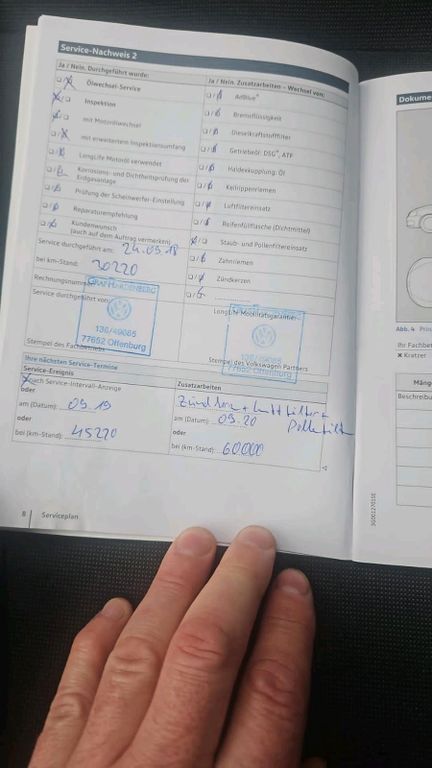 Service-Nachweis 2
Ja / Nein. Durchgeführt wurde:
Ölwechsel-Service
Inspektion
mit Motorölwechsel
mit erweitertem Inspektionsumfang
LongLife Motoröl verwendet
Korrosions- und Dichtheitsprüfung der
Erdgasanlage
Prüfung der Scheinwerfer-Einstellung
Reparaturempfehlung
Kundenwunsch
(auch auf dem Auftrag vermerken)
Service durchgeführt am: 24.09.18
bei km-Stand: 30220
Rechnungsnummer
Service durchgeführt von:
130/49065
77652 Offenburg
Stempel des Fachbetriebs
Ja / Nein. Zusatzarbeiten – Wechsel von:
AdBlue®
Bremsflüssigkeit
Dieselkraftstofffilter
Getriebeöl: DSG®, ATF
Haldexkupplung: Öl
Keilrippenriemen
Luftfiltereinsatz
Reifenfüllflasche (Dichtmittel)
Staub- und Pollenfiltereinsatz
Zahnriemen
Zündkerzen
LongLife Mobilitätsgarantie
130/49065
77652 Offenburg
Stempel des Volkswagen Partners
Ihre nächsten Service-Termine
Service-Ereignis
nach Service-Intervall-Anzeige
oder
am (Datum): 09.19
oder
bei (km-Stand): 45220
Zusatzarbeiten
am (Datum): 09.20
oder
bei (km-Stand): 60000
8 Serviceplan
Dokume
Abb. 4 Prin
Ihr Fachbet
× Kratzer
Mäng
Beschreibu